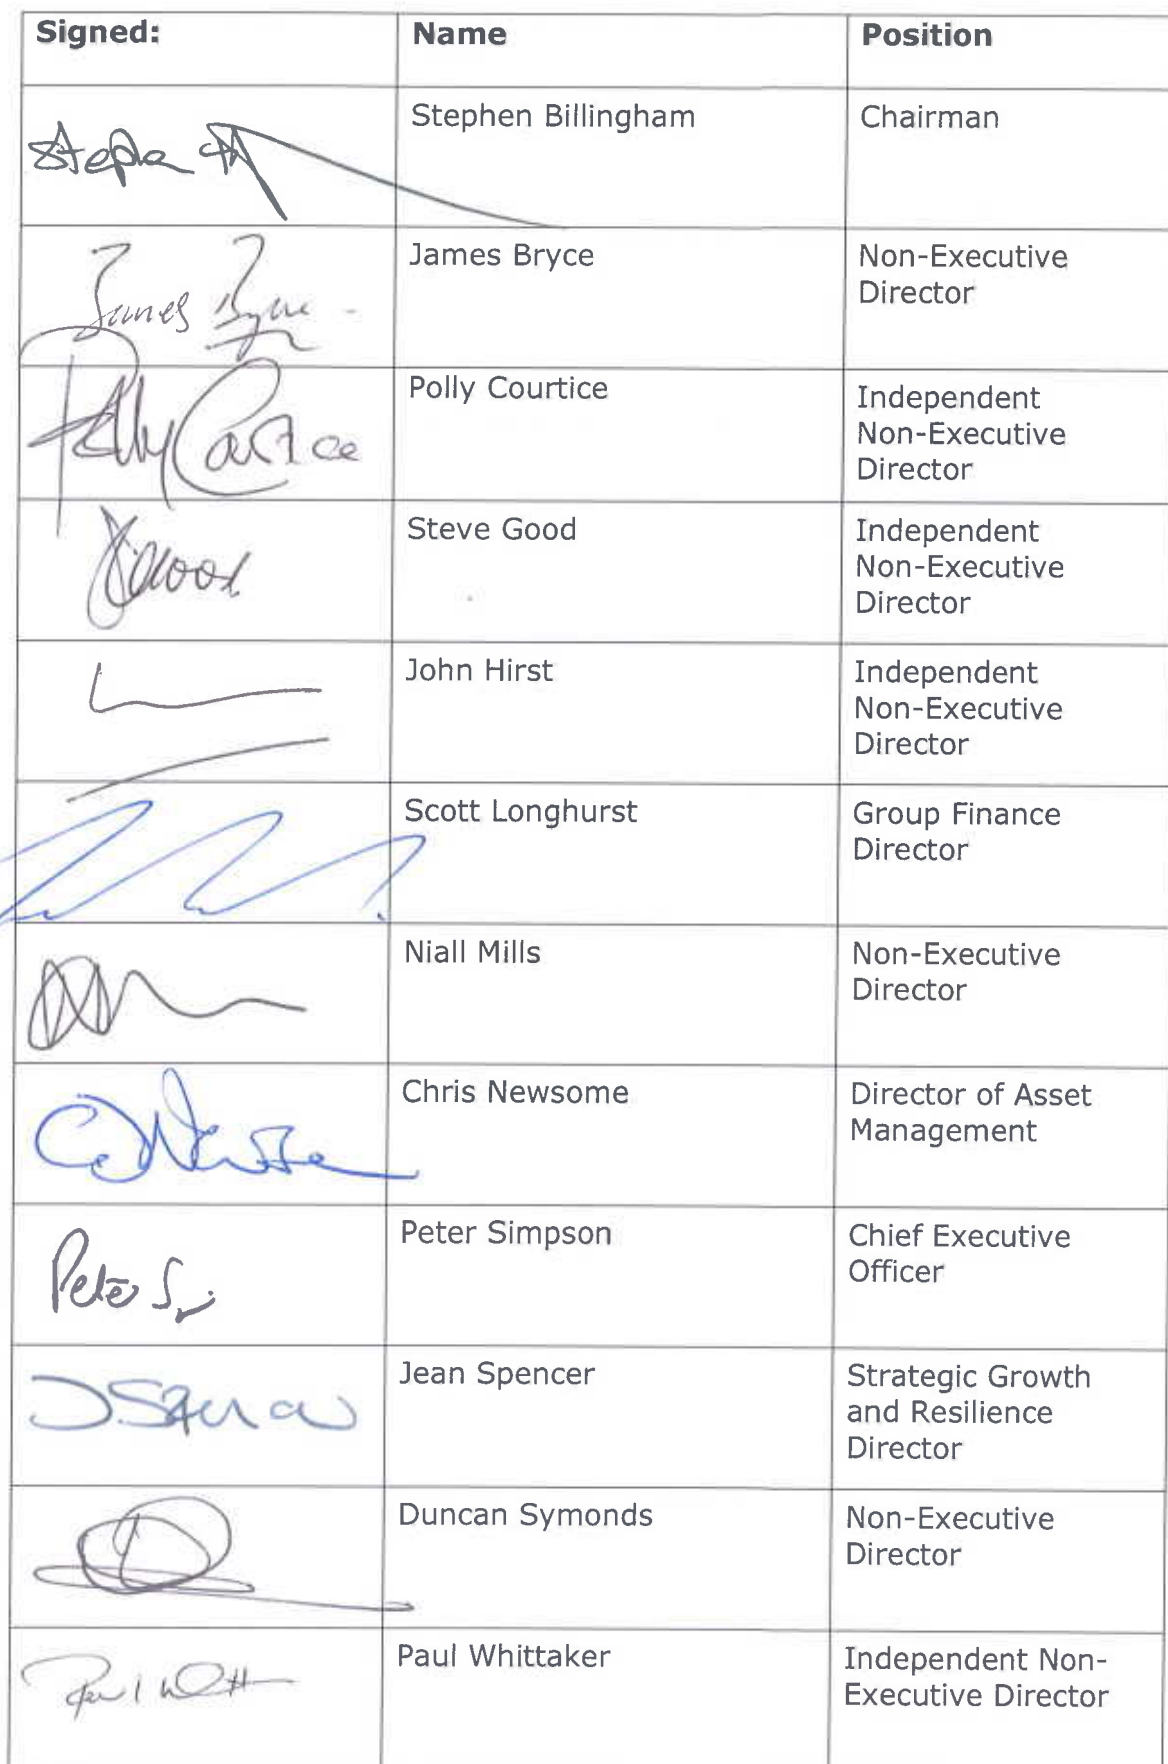 Signed: Name Position
Stephen Billingham Chairman
James Bryce Non-Executive
Director
James Bryce
Polly Courtice Independent
Non-Executive
Director
Polly Courtice
Steve Good Independent
Non-Executive
Director
John Hirst Independent
Non-Executive
Director
Scott Longhurst Group Finance
Director
Niall Mills Non-Executive
Director
Chris Newsome Director of Asset
Management
Peter Simpson Chief Executive
Officer
Peter
Jean Spencer Strategic Growth
and Resilience
Director
Duncan Symonds Non-Executive
Director
Paul Whittaker Independent Non-
Executive Director